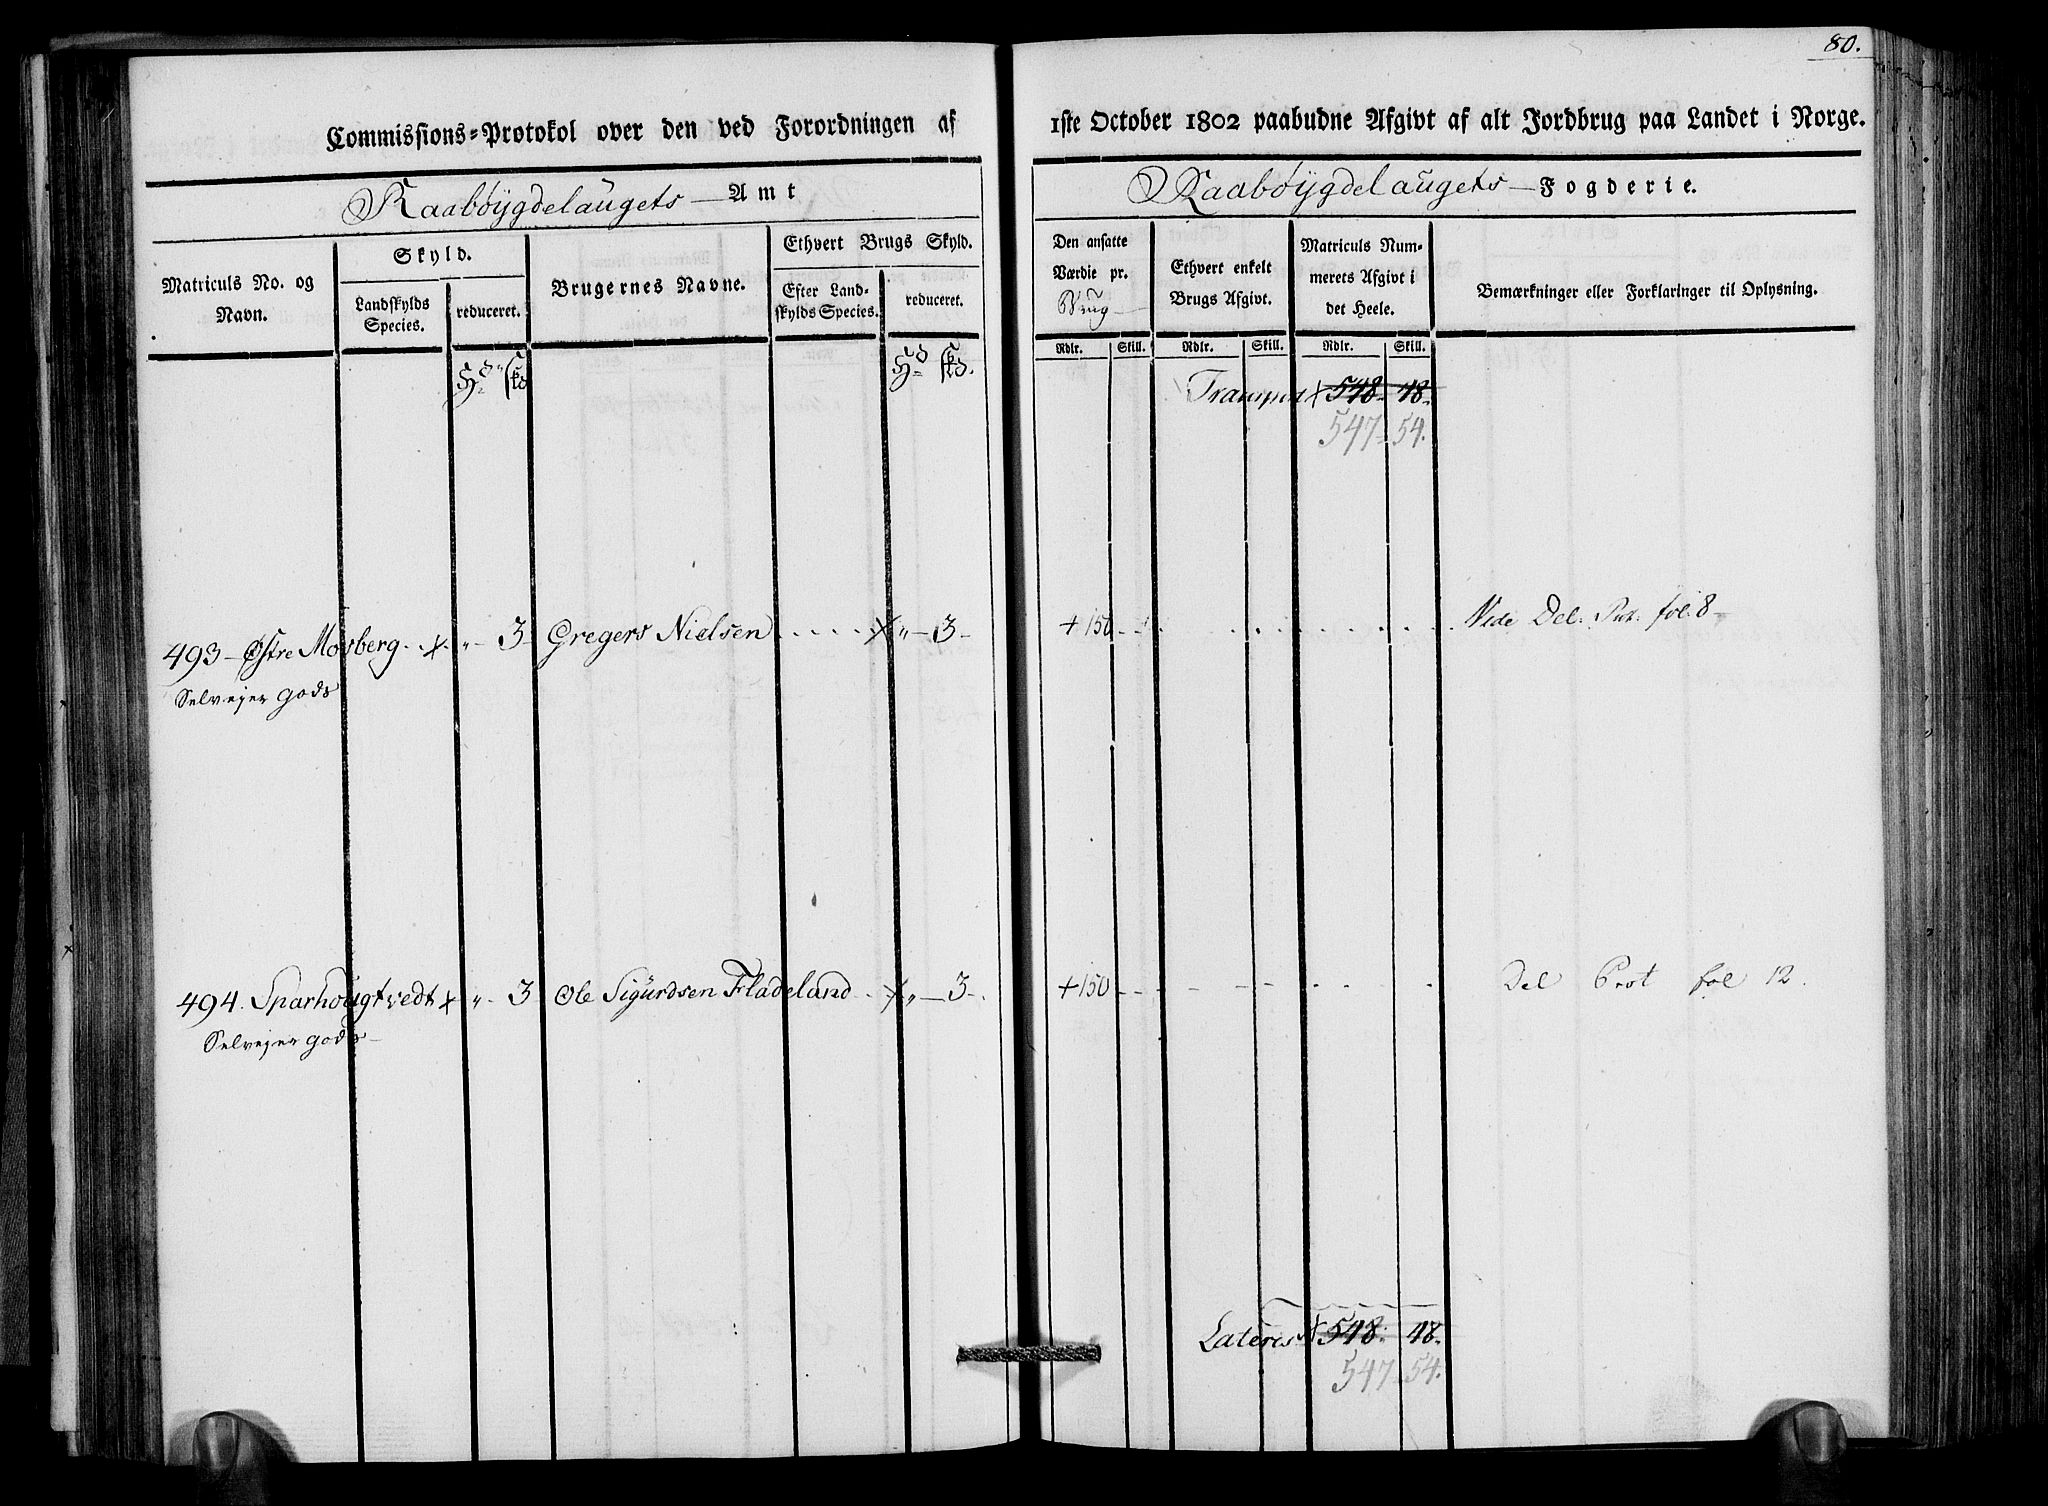 80.
Commissions-Protokol over den ved Forordningen af 1ste October 1802 paabudne Afgivt af alt Jordbrug paa Landet i Norge.
Raabøygdelaugets Amt
Raabøygdelaugets Fogderie.
Matriculs No. og Navn.
Skyld.
Landskylds Species.
reduceret.
Brugernes Navne.
Ethvert Brugs Skyld.
Efter Landskylds Species.
reduceret.
Den ansatte Værdie pr. Brug
Ethvert enkelt Brugs Afgivt.
Matriculs Nummerets Afgivt i det Heele.
Bemærkninger eller Forklaringer til Oplysning.
Rdlr. Skill. Rdlr. Skill. Rdlr. Skill.
Transport 548 48
547 54.
493 Østre Mosberg 3 Gregers Nielsen 3 + 150 Vide Del. Prt. fol. 8
Selvejer gods
494. Sparhougtvedt 3 Ole Sigurdsen Fladeland 3 + 150 Del Prot fol 12.
Selvejer gods
Lateris 548 48
547 54.